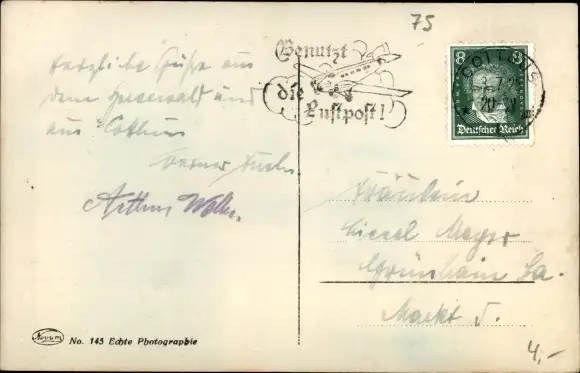 75
Benutzt
die
Luftpost!
COTTBUS
8 8
Deutsches Reich
Herzliche Grüße aus
dem Spreewald und
aus Cottbus
Werner
Arthur
Fräulein
Liesel Meyer
Grünhain Sa.
Markt 5.
Novum
No. 145 Echte Photographie
4,-